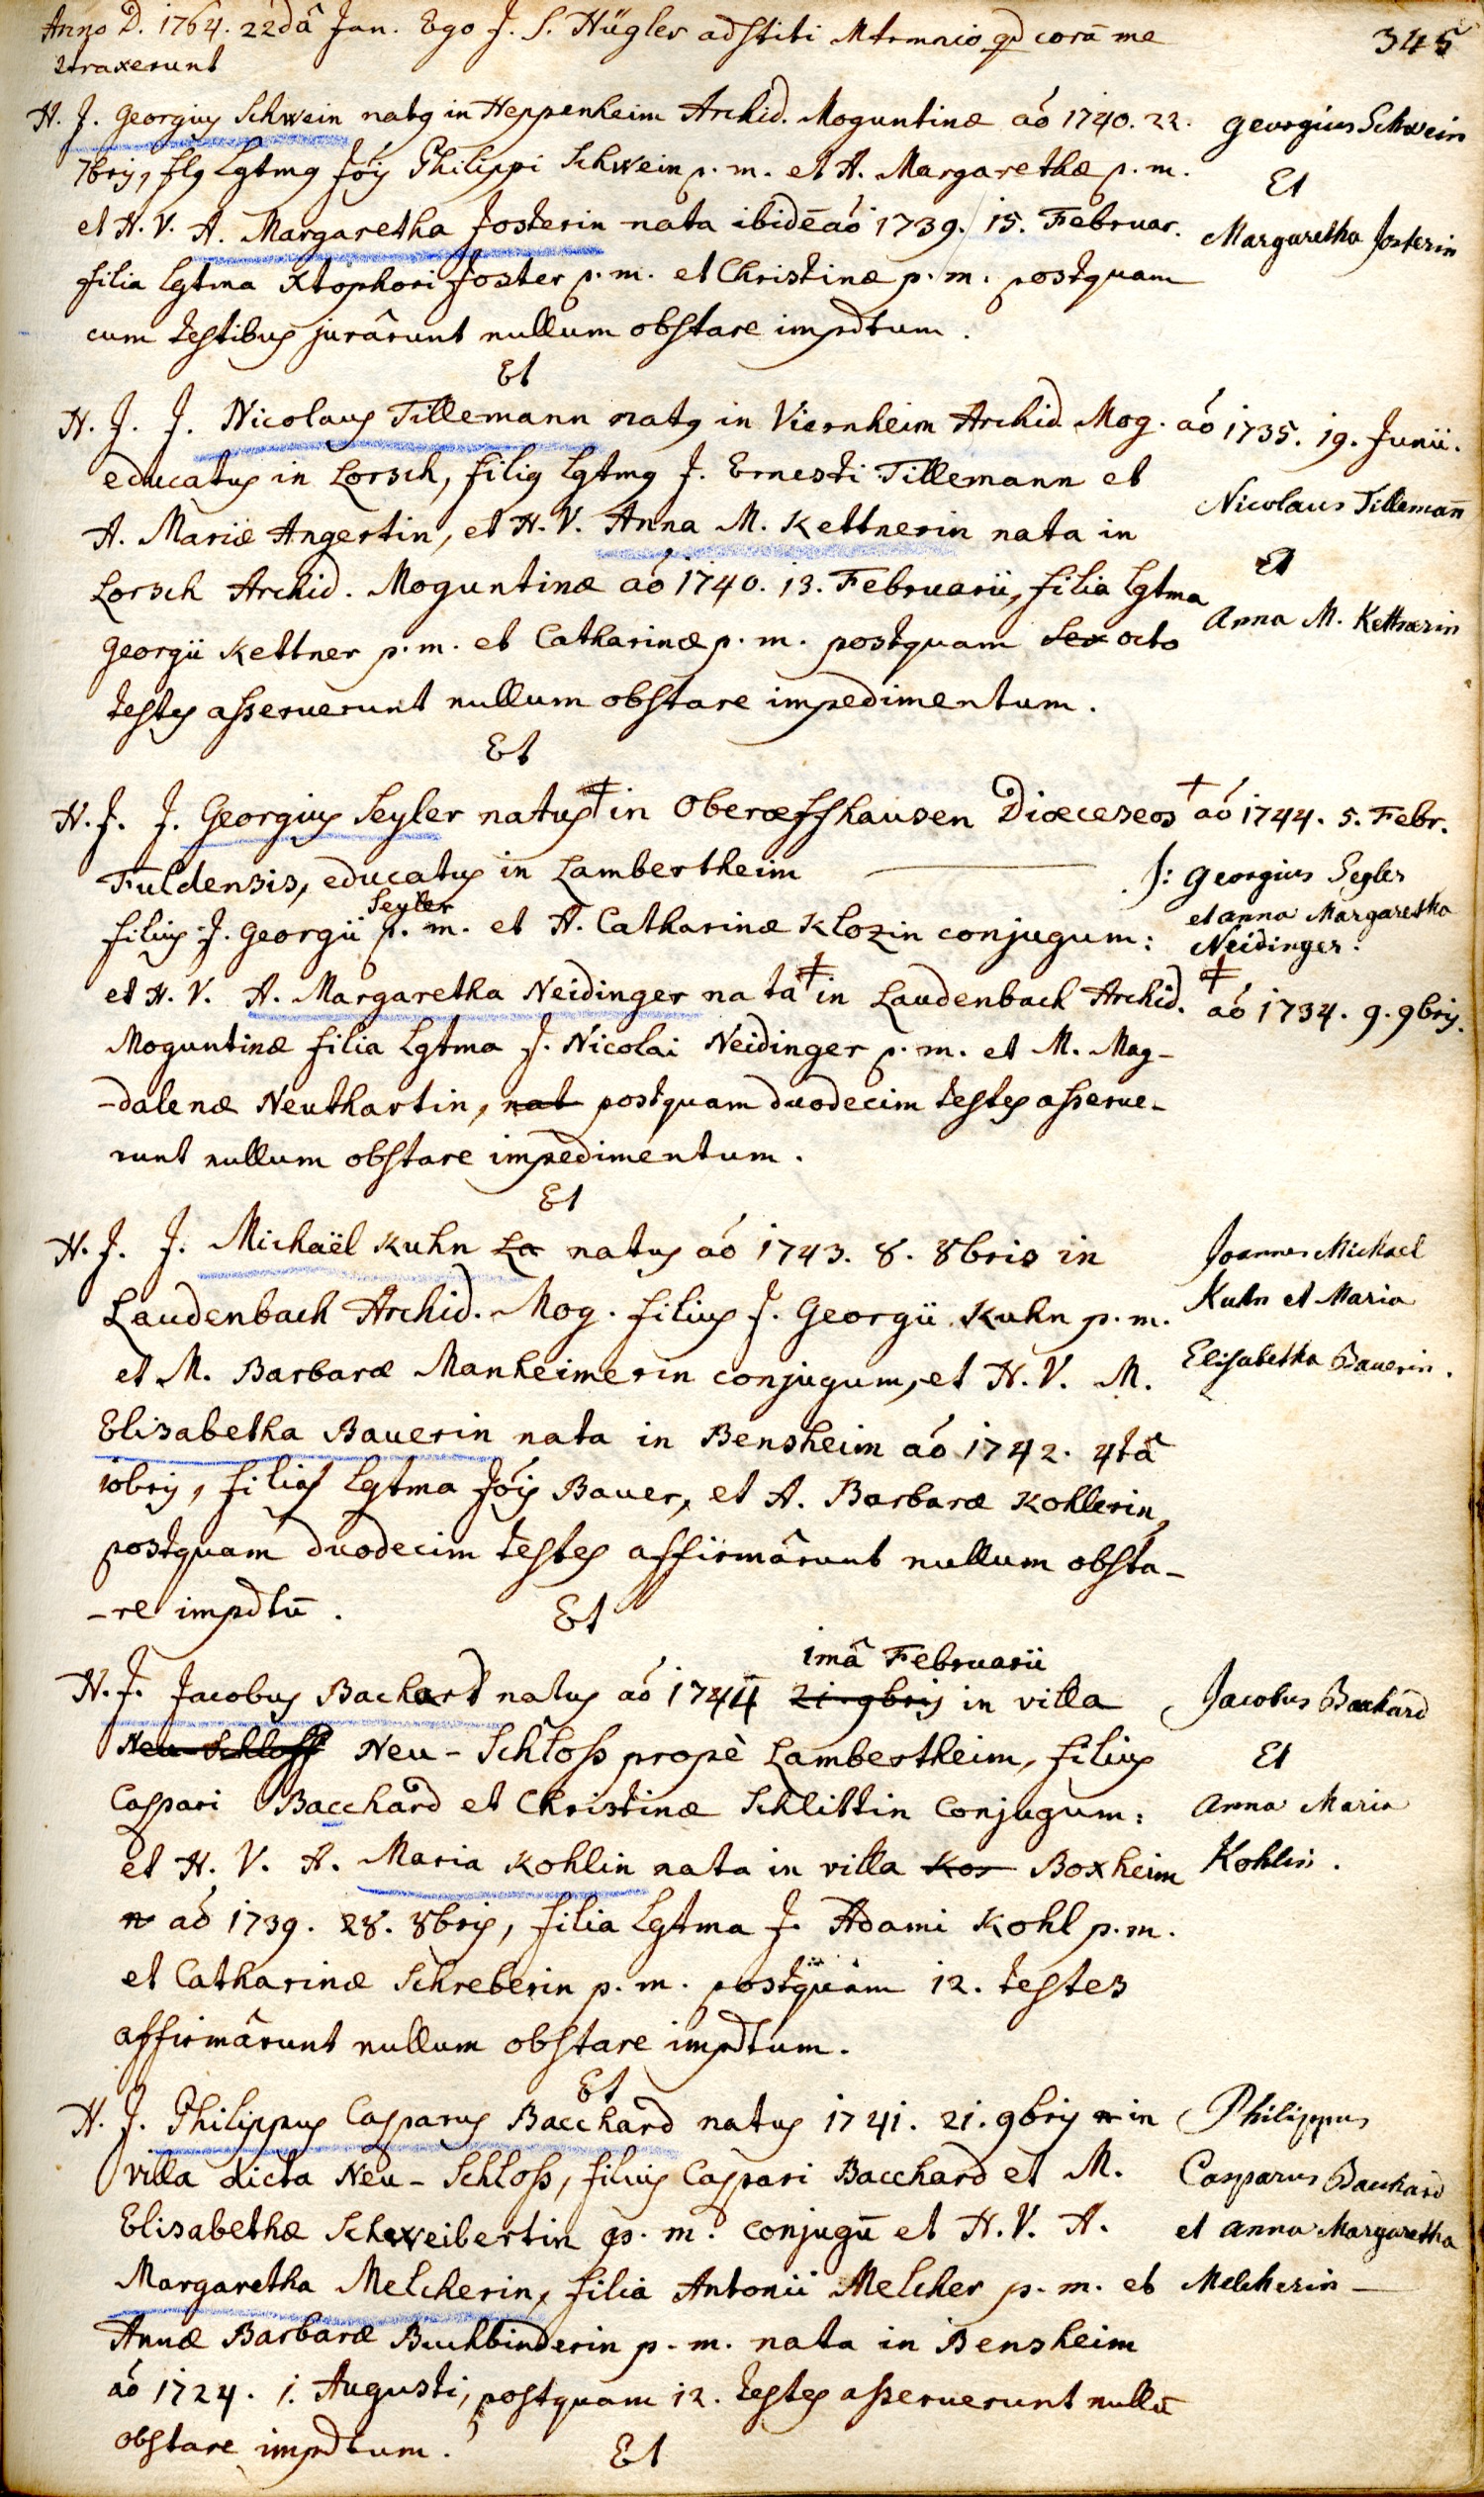 Anno D. 1764. 22dâ Jan. Ego J. S. Hügler adstiti Mtrmnio qd corā me
345
2traxerunt
H. J. Georgius Schwein natg in Heppenheim Archid. Moguntinæ aó 1740. 22.
Georgius Schwein
7bris, flg Lgtmg Jóis Philippi Schwein p. m. et A. Margarethæ p. m.
Et
et H. V. A. Margaretha Josterin nata ibidē aó 1739. 15. Februar.
Margaretha Josterin
filia Lgtma Xtophori Joster p. m. et Christinæ p. m. postquam
cum testibus jurârunt nullum obstare impdtum.
Et
H. J. J. Nicolaus Tillemann natg in Viernheim Archid. Mog. aó 1735. 19. Junii.
educatus in Lorsch, filig Lgtmg J. Ernesti Tillemann et
Nicolaus Tillemañ
A. Mariæ Angertin, et H. V. Anna M. Kettnerin nata in
Et
Lorsch Archid. Moguntinæ aó 1740. 13. Februarii, filia Lgtma
Anna M. Kettnerin
Georgii Kettner p. m. et Catharinæ p. m. postquam sex octo
testes asseruerunt nullum obstare impedimentum.
Et
H. J. J. Georgius Seyler natus ‡ in Oberæffhausen Diœceseos † aó 1744. 5. Febr.
Fuldensis, educatus in Lambertheim
J: Georgius Segler
Seyler
filius J. Georgii p. m. et A. Catharinæ Klozin conjugum:
et anna Margaretha
Neidinger.
et H. V. A. Margaretha Neidinger nata ‡ in Laudenbach Archid. ‡ aó 1734. 9. 9bris.
Moguntinæ filia Lgtma J. Nicolai Neidinger p. m. et M. Mag-
-dalenæ Neuthartin, nat postquam duodecim testes asserue-
runt nullum obstare impedimentum.
Et
H. J. J. Michaël Kuhn La natus aó 1743. 8. 8bris in
Joannes Michael
Laudenbach Archid. Mog. filius J. Georgii Kuhn p. m.
Kuhn et Maria
et M. Barbaræ Manheimerin conjugum, et H. V. M.
Elisabetha Bauerin.
Elisabetha Bauerin nata in Bensheim aó 1742. 4tâ
10bris, filia Lgtma Jóis Bauer, et A. Barbaræ Kohlerin,
postquam duodecim testes affirmârunt nullum obsta-
-re impdtū.
Et
1mâ Februarii
H. J. Jacobus Bachard natus aó 1744 21. 9bris in villa
Jacobus Bachard
Neu-Schloss Neu-Schloss propè Lambertheim, filius
Et
Caspari Bacchard et Christinæ Schlittin Conjugum:
Anna Maria
et H. V. A. Maria Kohlin nata in villa Kor Boxheim
Kohlin.
n aó 1739. 28. 8bris, filia Lgtma J. Adami Kohl p. m.
et Catharinæ Schreberin p. m. postquàm 12. testes
affirmârunt nullum obstare impdtum.
Et
H. J. Philippus Casparus Bacchard natus 1741. 21. 9bris n in
Philippus
villa dicta Neu-Schloss, filius Caspari Bacchard et M.
Casparus Bacchard
Elisabethæ Schweibertin p. m. conjugū et H. V. A.
et anna Margaretha
Margaretha Melcherin, filia Antonii Melcher p. m. et
Melcherin
Annæ Barbaræ Buchbinderin p. m. nata in Bensheim
aó 1724. 1. Augusti, postquam 12. testes asseruerunt nullū
obstare impdtum.
Et